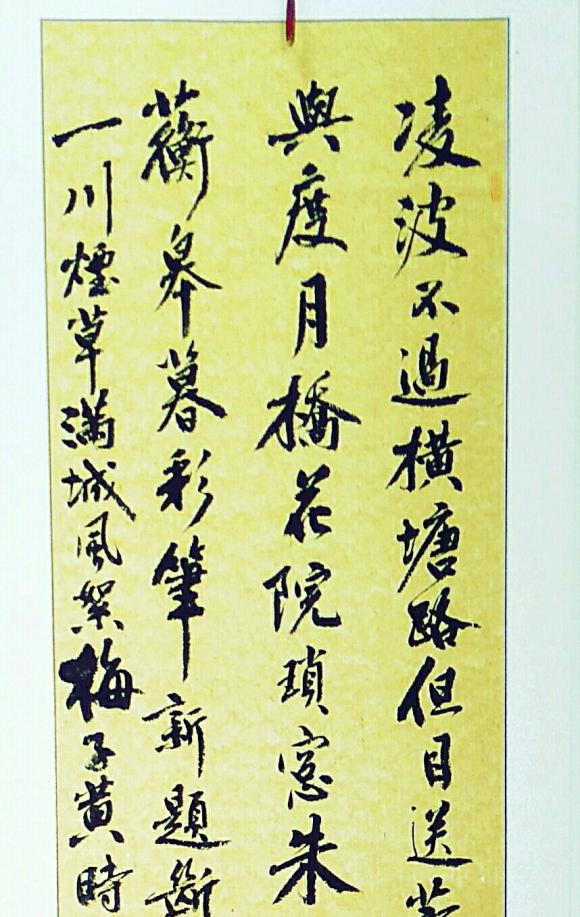 凌波不過橫塘路但目送芳
與度月橋花院瑣窓朱
蘅皋暮彩筆新題斷
一川煙草滿城風絮梅子黃時